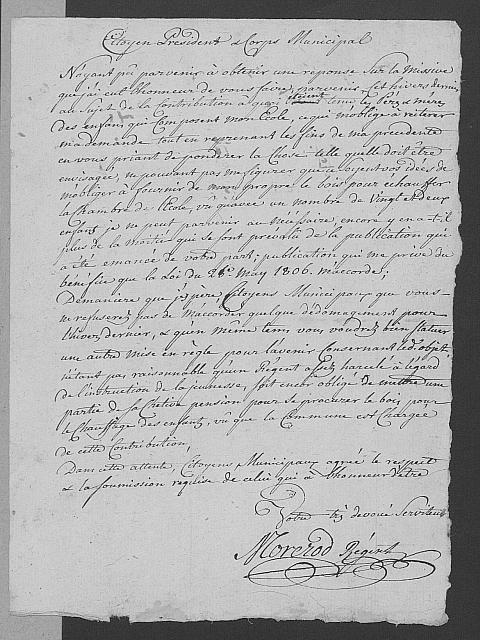 Citoyen Président & Corps Municipal
N'ayant pû parvenir à obtenir une reponse sur la missive
que j'ai eut l'honneur de vous faire parvenir cet hivers dernier
au Sujet de la Contribution a quoi étoient tenu le Péres & meres
des enfans qui Composent mon Ecole, ce qui m'oblige à réiterer
ma demande tout en reprenant les fins de ma precedente
en vous priant de pondérer la Chose telle quelle doit être
envisagée, ne pouvant pas me figurer que ce soyent vos idées de
m'obliger à fournir de mon propre le bois pour echauffer
la Chambre de l'Ecole, vû qu'avec un nombre de Vingt et deux
enfans je ne peut parvenir au nécéssaire, encore y en a-t-il
plus de la moitié qui se sont prévalu de la publication qui
a été emanée de votre part; publication qui me prive du
bénéfice que la Loi du 28e May 1806. m'accorde;
Demaniere que j'éspère Citoyens Municipaux que vous
ne refuserez pas de m'accorder quelque dédomagement pour
l'hiver dernier, & qu'en même tems vous voudrez bien statuer
une autre mise en règle pour l'avenir Consernant led. objet
n'étant pas raisonnable qu'un Régent assez harcelé à l'égard
de l'instruction de la jeunesse, soit encor obligé de mettre une
partie de sa Chetive pension pour se procurer le bois pour
le Chauffage des enfans, vû que la Commune est Chargée
de cette Contribution,
Dans cette attente, Citoyens Municipaux agréé le respect
& la soumission requise de celui qui à l'honneur d'etre
Votre très devoué Serviteur
Morerod Régent